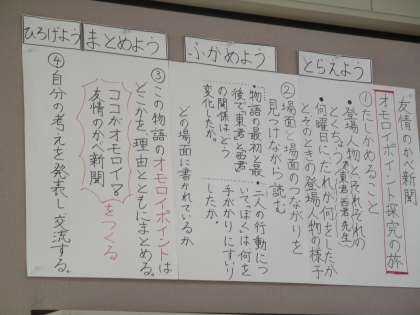 ひろげよう
まとめよう
ふかめよう
とらえよう
友情のかべ新聞
オモロイポイント探究の旅
①たしかめること
・登場人物とそれぞれの
とくちょう(東君・西君・先生)
・何曜日に、だれが何をしたか
とそのときの登場人物の様子
②場面と場面のつながりを
見つけながら読む
・物語の最初と最
後で東君と西君
の関係はどう
変化したか。
・二人の行動につ
いて、ぼくは何を
手がかりにすいり
したか。
どの場面に書かれているか
③この物語のオモロイポイントは
どこかを理由とともにまとめる。
ココがオモロイ!
友情のかべ新聞
をつくる
④自分の考えを発表し交流する。